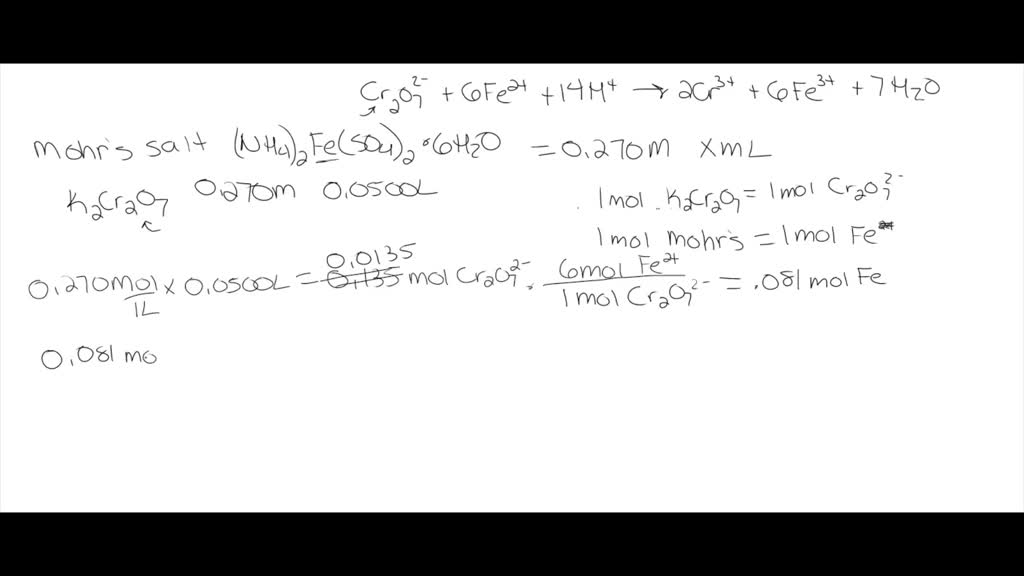 Cr₂O₇²⁻ + 6Fe²⁺ + 14H⁺ → 2Cr³⁺ + 6Fe³⁺ + 7H₂O
Mohr's salt (NH₄)₂Fe(SO₄)₂•6H₂O = 0.270M XmL
K₂Cr₂O₇ 0.270M 0.0500L
1mol K₂Cr₂O₇ = 1mol Cr₂O₇²⁻
1mol mohr's = 1mol Fe²⁺
0.0135
0.270mol/1L x 0.0500L = 0.135 mol Cr₂O₇²⁻ · 6mol Fe²⁺/1mol Cr₂O₇²⁻ = .081mol Fe
0.081 mo